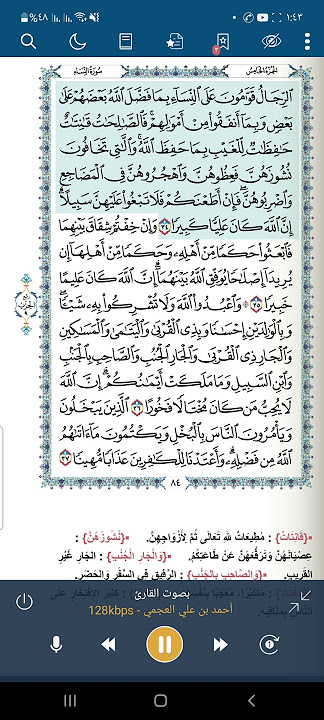 ١:٤٣
٪٤٨
٢
الجزء الخامس
سورة النساء
الرجال قوامون على النساء بما فضل الله بعضهم على
بعض وبما أنفقوا من أموالهم فالصالحات قانتات
حافظات للغيب بما حفظ الله والتي تخافون
نشوزهن فعظوهن واهجروهن في المضاجع
واضربوهن فإن أطعنكم فلا تبغوا عليهن سبيلا
إن الله كان عليا كبيرا ٣٤ وإن خفتم شقاق بينهما
فابعثوا حكما من أهله وحكما من أهلها إن
يريدا إصلاحا يوفق الله بينهما إن الله كان عليما
خبيرا ٣٥ واعبدوا الله ولا تشركوا به شيئا
وبالوالدين إحسانا وبذي القربى واليتامى والمساكين
والجار ذي القربى والجار الجنب والصاحب بالجنب
وابن السبيل وما ملكت أيمانكم إن الله
لا يحب من كان مختالا فخورا ٣٦ الذين يبخلون
ويأمرون الناس بالبخل ويكتمون ما ءاتاهم
الله من فضله وأعتدنا للكافرين عذابا مهينا ٣٧
٨٤
{قانتات} : مطيعات لله تعالى ثم لأزواجهن. {نشوزهن} :
عصيانهن وترفعهن عن طاعتكم. {والجار الجنب} : الجار غير
القريب. {والصاحب بالجنب} : الرفيق في السفر والحضر.
بصوت القارئ
أحمد بن علي العجمي - 128kbps
1